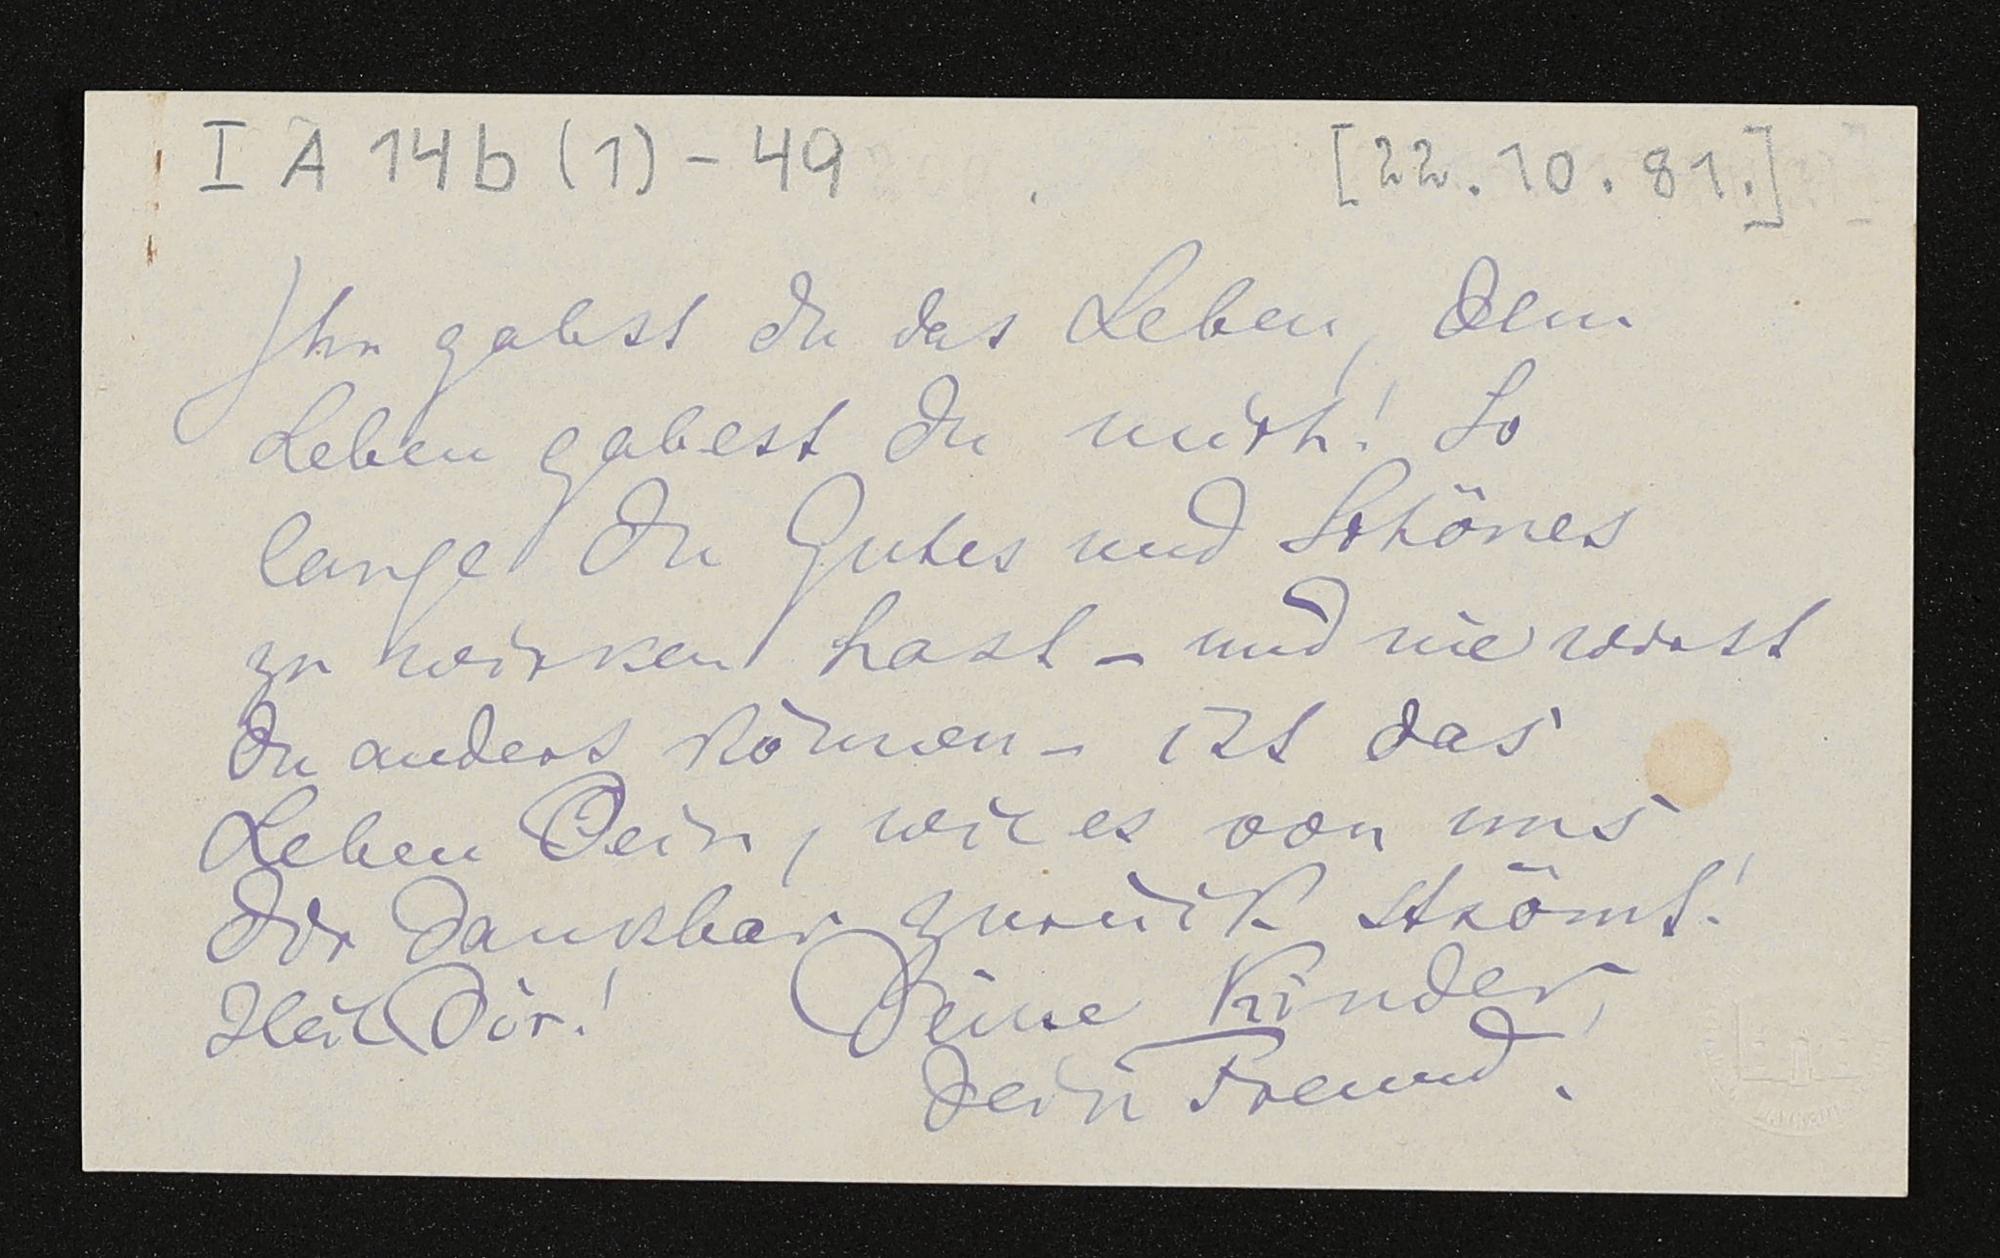 I A 14b (1) - 49 [22.10.81.]
Ihr gabst du das Leben, dem
Leben gabest du mich! So
lange du Gutes und Schönes
zu wirken hast – und nie wirst
du anders können – ist das
Leben Dein, wie es von uns
dir dankbar zurück strömt!
Heil Dir! Deine Kinder,
dein Freund.